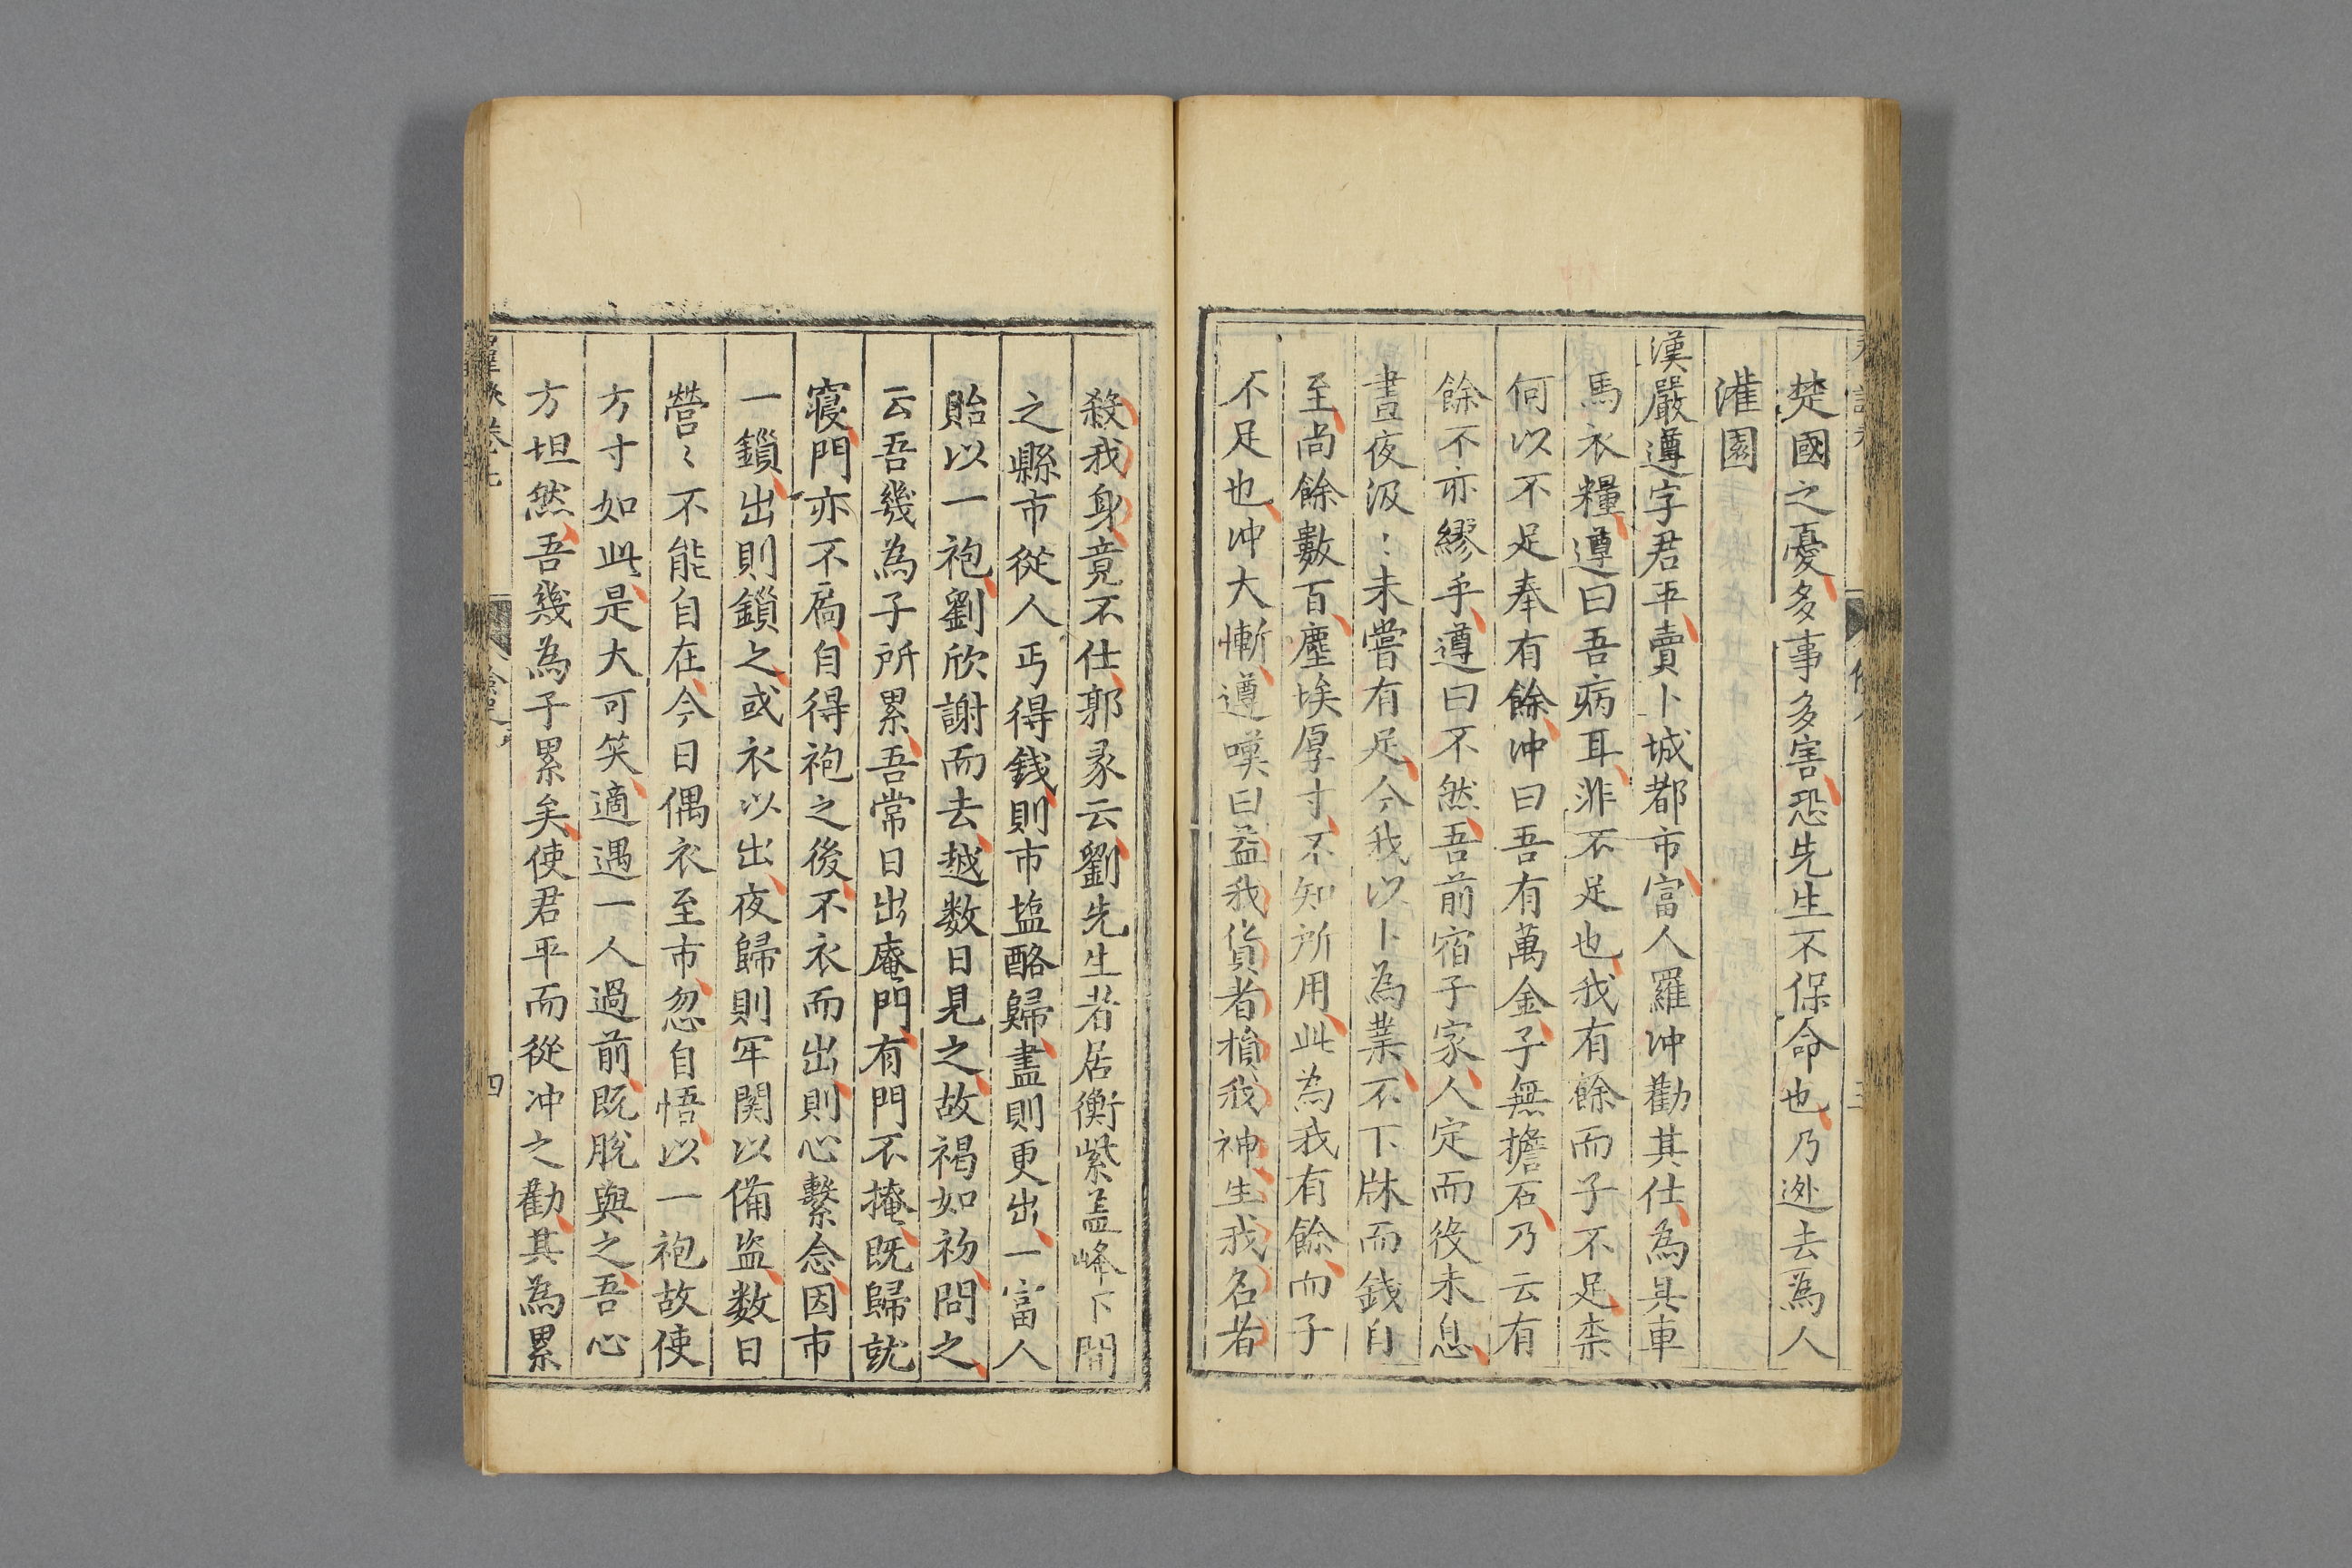 楚國之憂多事多害恐先生不保命也乃迯去為人
灌園
漢嚴遵字君平賣卜城都市富人羅冲勸其仕為具車
馬衣糧遵曰吾病耳非不足也我有餘而子不足柰
何以不足奉有餘冲曰吾有萬金子無擔石乃云有
餘不亦繆乎遵曰不然吾前宿子家人定而役未息
晝夜汲〻未嘗有足今我以卜為業不下牀而錢自
至尚餘數百塵埃厚寸不知所用此為我有餘而子
不足也冲大慚遵嘆曰益我貨者損我神生我名者
殺我身竟不仕郭彖云劉先生者居衡紫盖峰下間
之縣市從人丐得錢則市塩酪歸盡則更出一富人
貽以一袍劉欣謝而去越数日見之故褐如初問之
云吾幾為子所累吾常日出庵門有門不掩既歸就
寢門亦不扃自得袍之後不衣而出則心繫念因市
一鎖出則鎖之或衣以出夜歸則牢関以備盗数日
營〻不能自在今日偶衣至市忽自悟以一袍故使
方寸如此是大可笑適遇一人過前既脫與之吾心
方坦然吾幾為子累矣使君平而從冲之勸其為累
卷七
四